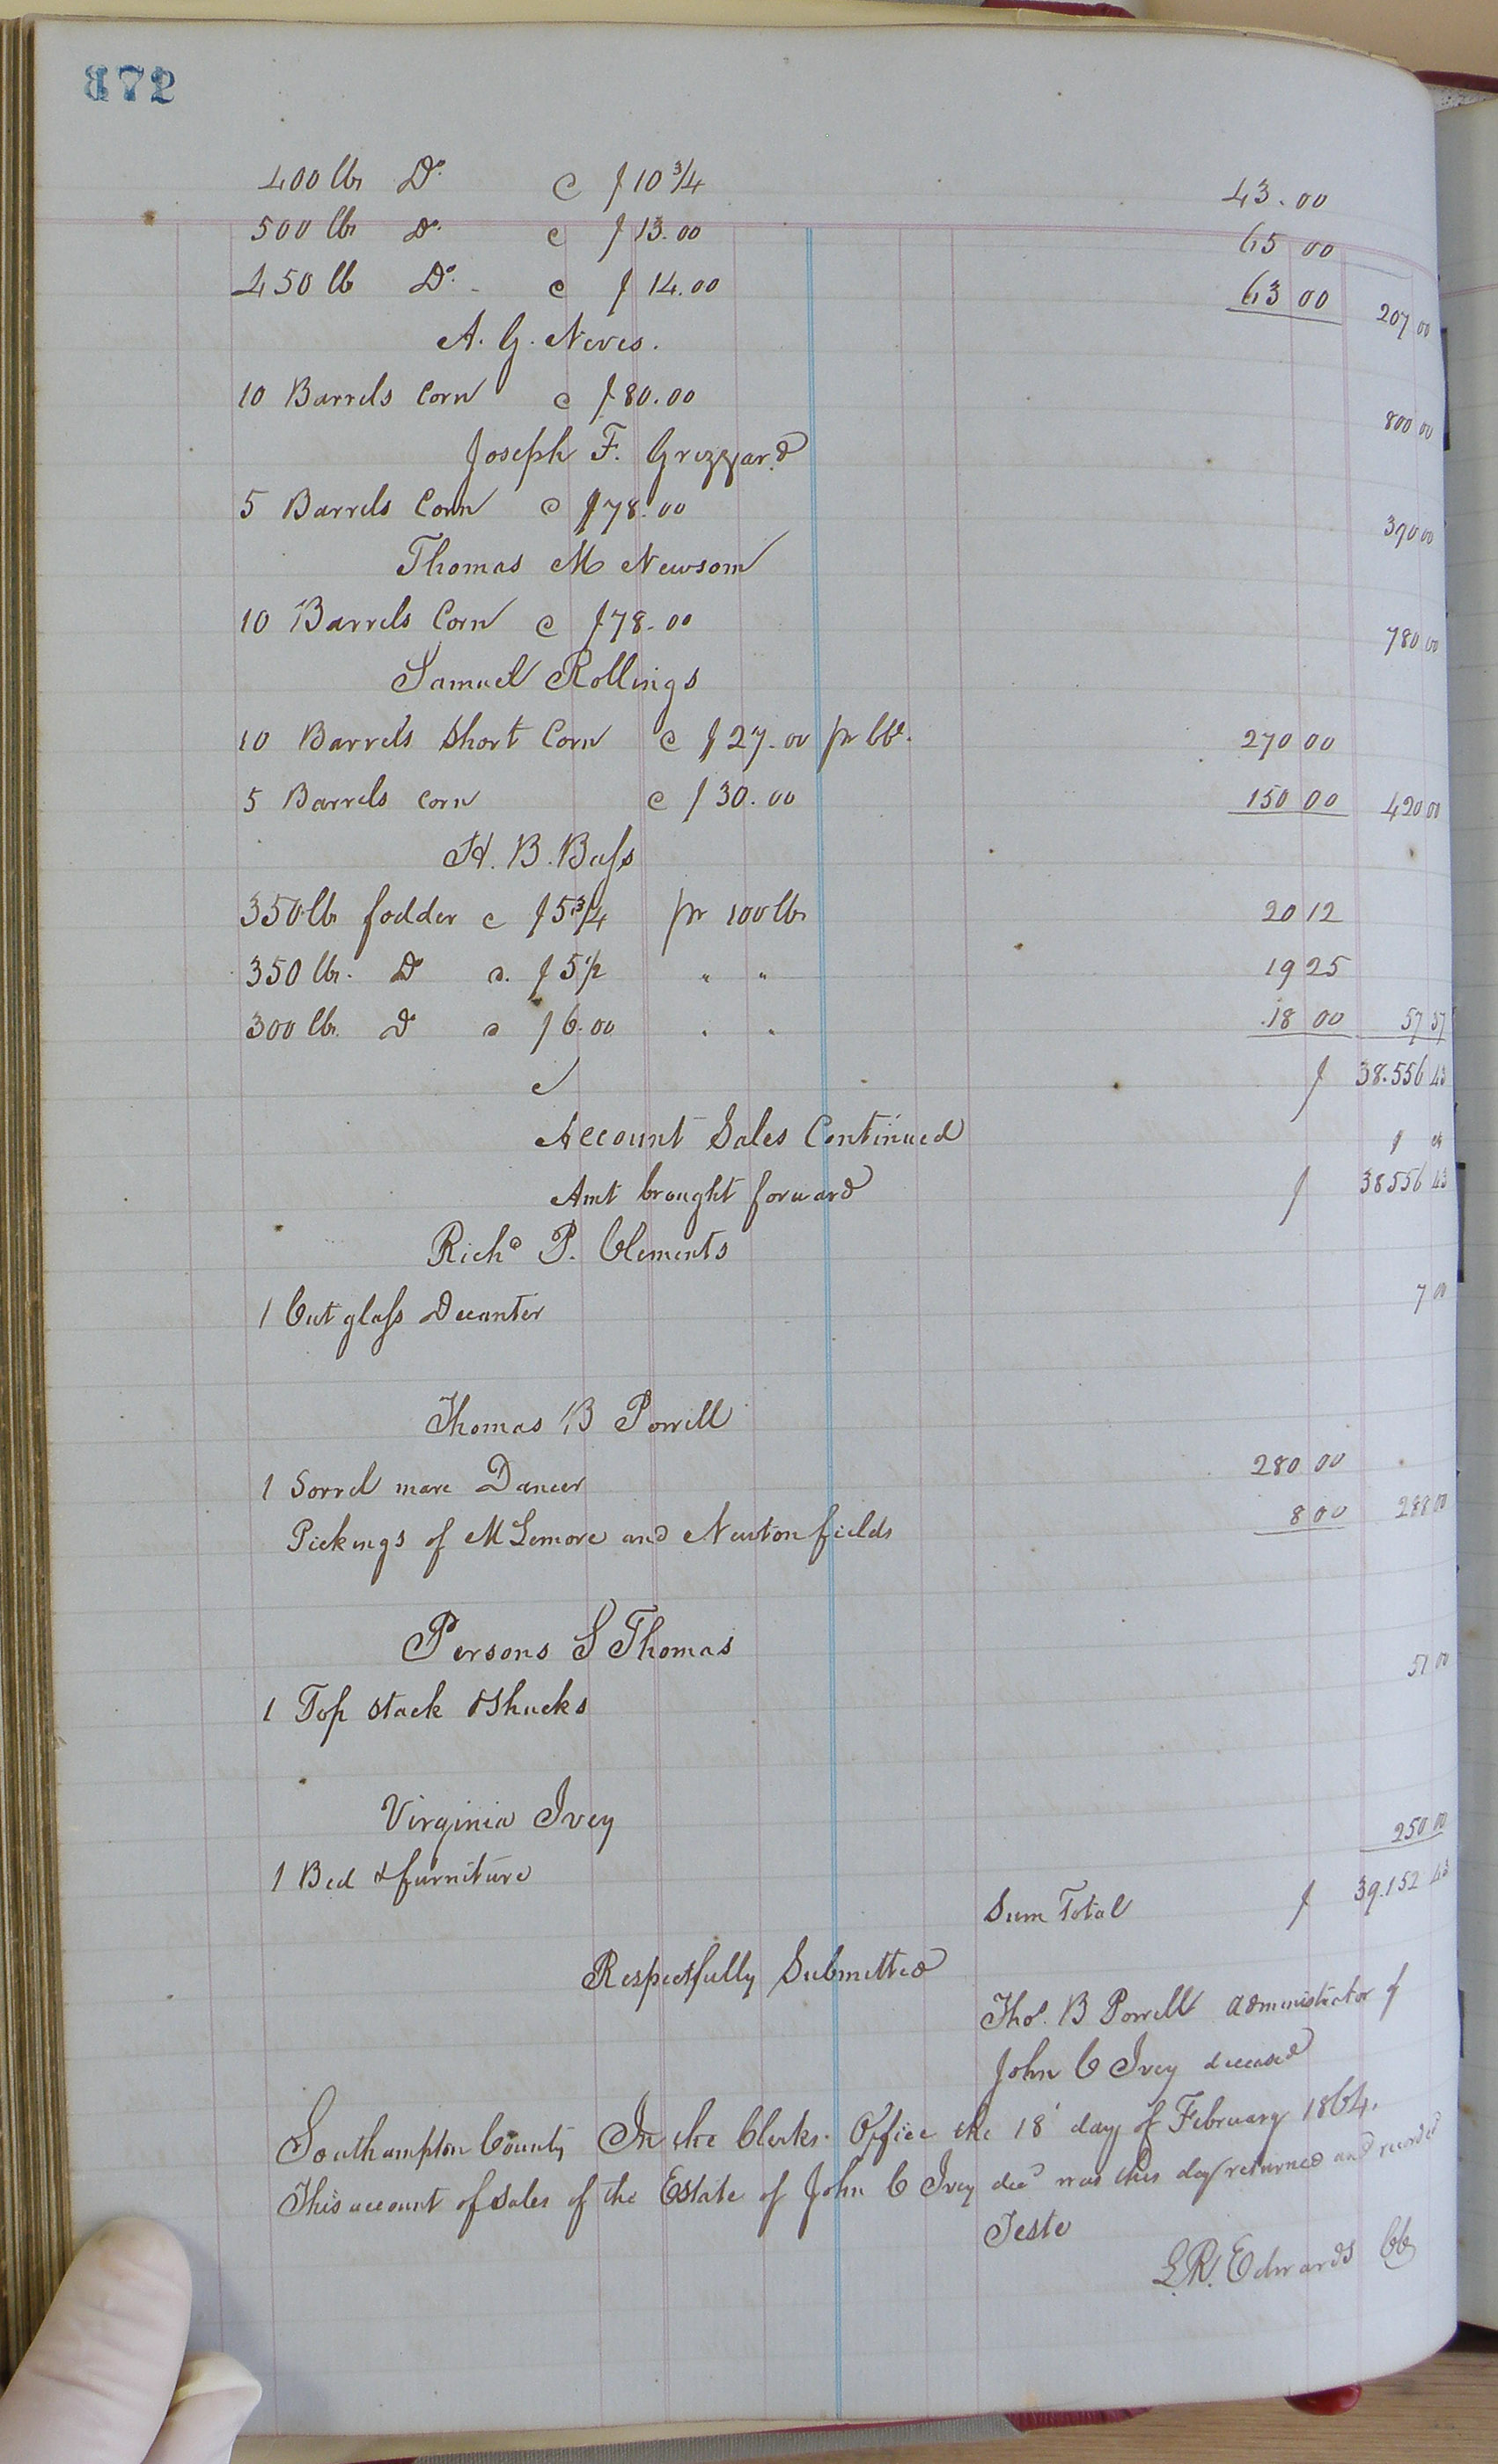 372
400 lbs Do. @ $10 3/4 43.00
500 lbs Do. @ $13.00 65 00
450 lb Do. @ $14.00 63 00 207 00
A. G. Neves.
10 Barrels Corn @ $80.00 800 00
Joseph F. Grizzard
5 Barrels Corn @ $78.00 390 00
Thomas M Newsom
10 Barrels Corn @ $78.00 780 00
Samuel Rollings
10 Barrels Short Corn @ $27.00 pr bbl. 270 00
5 Barrels Corn @ $30.00 150 00 420 00
H. B. Bass
350 lbs fodder @ $5 3/4 pr 100 lbs 20 12
350 lbs. Do @ $5 1/2 " " 19 25
300 lbs. Do @ $6.00 " " 18 00 57 37
$ 38.556 43
Account Sales Continued $ cts
Amt brought forward $ 38556 43
Richd P. Clements
1 Cut glass Decanter 7 00
Thomas B Porrill
1 Sorrel mare Dancer 280 00
Pickings of McLemore and Newton fields 8 00 288 00
Persons S Thomas
1 Top stack & Shucks 51 00
Virginia Ivey
1 Bed & furniture 250 00
Sum Total $ 39.152 43
Respectfully Submitted
Thos. B Porrill administrator of
John C Ivey deceased
Southampton County In the Clerks Office the 18 day of February 1864.
This account of sales of the Estate of John C Ivey decd was this day returned and recorded
Teste
L.R. Edwards CC